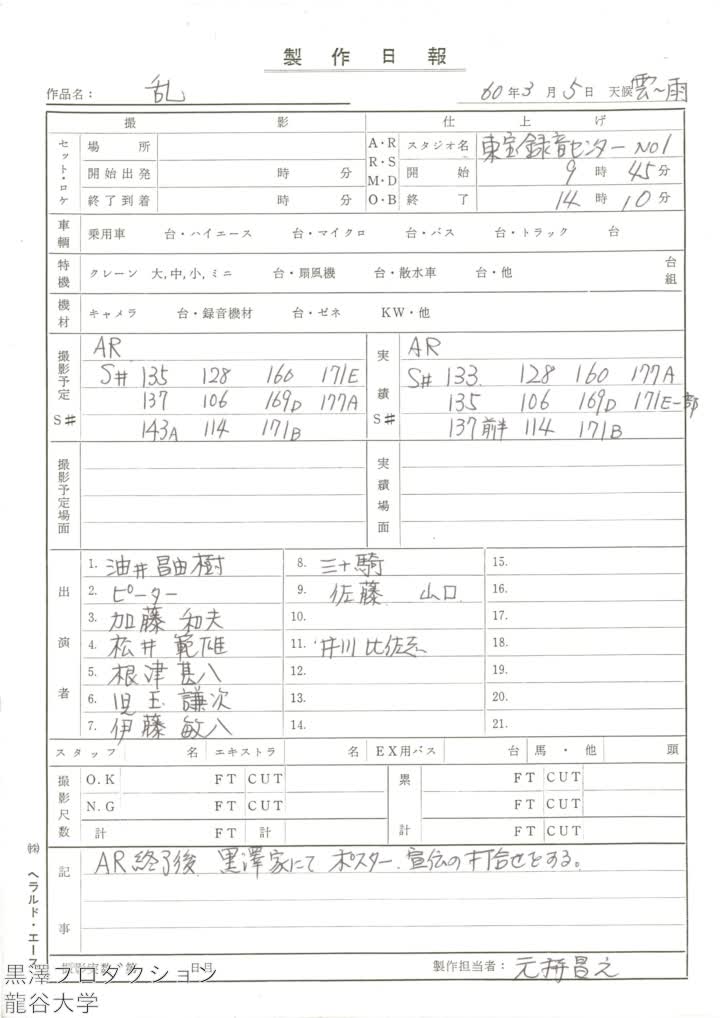 製作日報
作品名： 乱 60年3月5日 天候 雲〜雨
撮影 仕上げ
セット・ロケ 場所 A・R R・S M・D O・B スタジオ名 東宝録音センター NO1
開始出発 時 分 開始 9時45分
終了到着 時 分 終了 14時10分
車輌 乗用車 台・ハイエース 台・マイクロ 台・バス 台・トラック 台
特機 クレーン 大,中,小,ミニ 台・扇風機 台・散水車 台・他 台組
機材 キャメラ 台・録音機材 台・ゼネ KW・他
撮影予定 S# AR
S# 135 128 160 171E
137 106 169D 177A
143A 114 171B
実績 S# AR
S# 133. 128 160 177A
135 106 169D 171E一部
137前半 114 171B
撮影予定場面 実績場面
出演者
1. 油井昌由樹 8. 三十騎 15.
2. ピーター 9. 佐藤 山口 16.
3. 加藤和夫 10. 17.
4. 松井範雄 11. 井川比佐志 18.
5. 根津甚八 12. 19.
6. 児玉謙次 13. 20.
7. 伊藤敏八 14. 21.
スタッフ 名 エキストラ 名 EX用バス 台 馬・他 頭
撮影尺数 O.K FT CUT 累計 FT CUT
N.G FT CUT FT CUT
計 FT 計 FT CUT
記事 AR終了後 黒澤家にて ポスター、宣伝の打合せをする。
撮影実数 第 日目 製作担当者： 元持昌之
㈱ ヘラルド・エース
黒澤プロダクション
龍谷大学